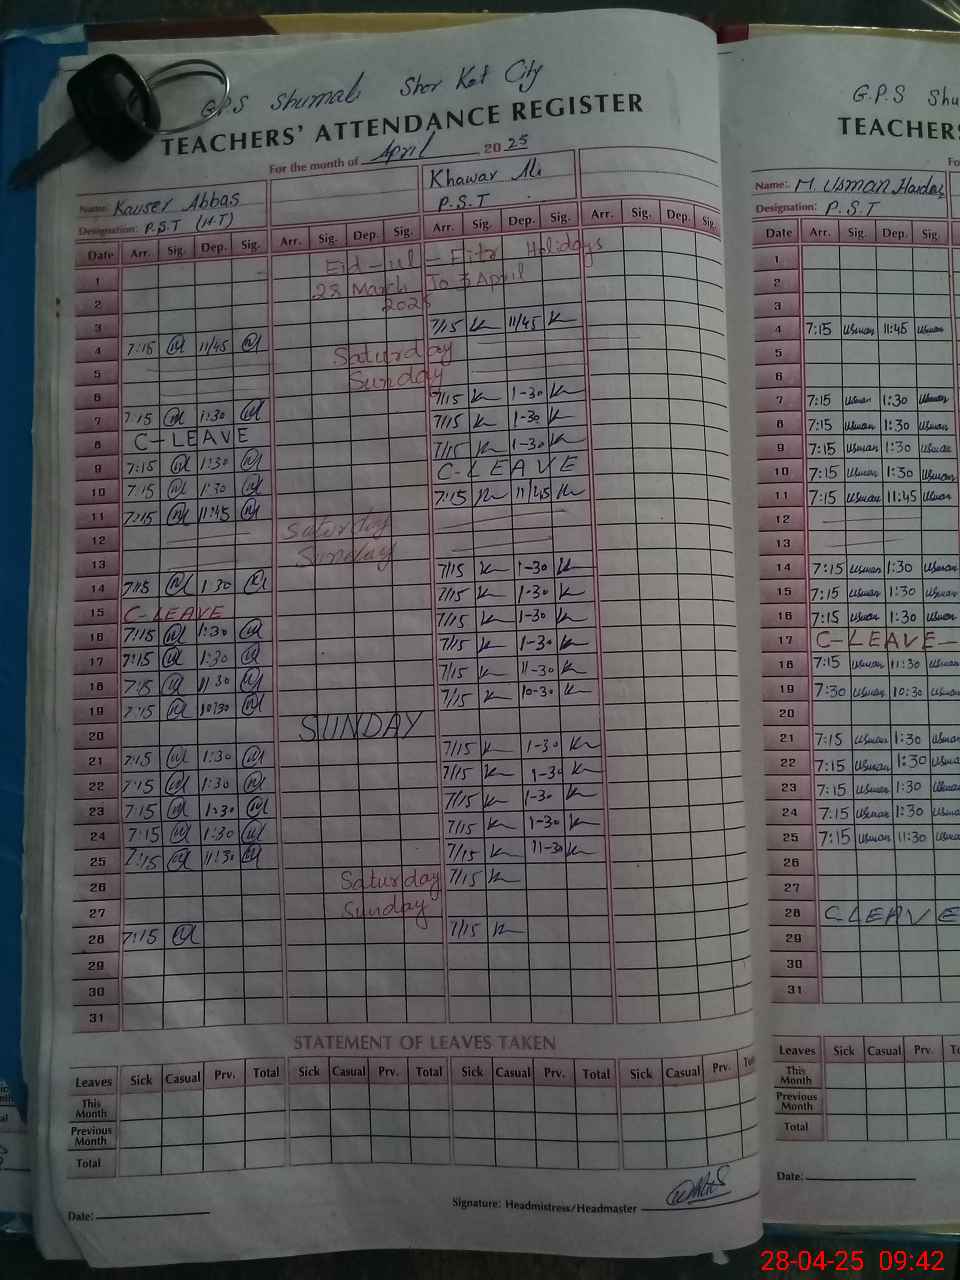 G.P.S Shumali Shor Kot City
TEACHERS' ATTENDANCE REGISTER
For the month of April 2025
Name: Kauser Abbas
Designation: P.S.T (H.T)
Khawar Ali
P.S.T
Date Arr. Sig. Dep. Sig. Arr. Sig. Dep. Sig. Arr. Sig. Dep. Sig. Arr. Sig. Dep. Sig.
1 Eid-ul-Fitr Holidays
2 28 March To 3 April
3 2025
4 7:15 11/45 7/15 11/45
5 Saturday
6 Sunday
7 7:15 1:30 7/15 1-30
8 C-LEAVE 7/15 1-30
9 7:15 1:30 7/15 1-30
10 7:15 1:30 C-LEAVE
11 7:15 11:45 7:15 11/45
12 Saturday
13 Sunday
14 7:15 1:30 7/15 1-30
15 C-LEAVE 7/15 1-30
16 7:15 1:30 7/15 1-30
17 7:15 1:30 7/15 1-30
18 7:15 11:30 7/15 11-30
19 7:15 10:30 7/15 10-30
20 SUNDAY
21 7:15 1:30 7/15 1-30
22 7:15 1:30 7/15 1-30
23 7:15 1:30 7/15 1-30
24 7:15 1:30 7/15 1-30
25 7:15 11:30 7/15 11-30
26 Saturday 7/15
27 Sunday
28 7:15 7/15
29
30
31
STATEMENT OF LEAVES TAKEN
Leaves Sick Casual Prv. Total Sick Casual Prv. Total Sick Casual Prv. Total Sick Casual Prv.
This Month
Previous Month
Total
Date:
Signature: Headmistress/Headmaster
G.P.S
TEACHERS
Name: M. Usman Haider
Designation: P.S.T
Date Arr. Sig. Dep. Sig.
1
2
3
4 7:15 usman 11:45 usman
5
6
7 7:15 usman 1:30 usman
8 7:15 usman 1:30 usman
9 7:15 usman 1:30 usman
10 7:15 usman 1:30 usman
11 7:15 usman 11:45 usman
12
13
14 7:15 usman 1:30 usman
15 7:15 usman 1:30 usman
16 7:15 usman 1:30 usman
17 C-LEAVE
18 7:15 usman 11:30 usman
19 7:30 usman 10:30 usman
20
21 7:15 usman 1:30 usman
22 7:15 usman 1:30 usman
23 7:15 usman 1:30 usman
24 7:15 usman 1:30 usman
25 7:15 usman 11:30 usman
26
27
28 C-LEAVE
29
30
31
Leaves Sick Casual Prv.
This Month
Previous Month
Total
Date:
28-04-25 09:42